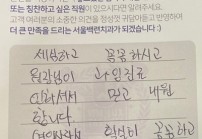 또는 칭찬하고 싶은 직원이 있으시다면 알려주세요.
고객 여러분의 소중한 의견을 정성껏 귀담아듣고 반영하여
더 큰 만족을 드리는 서울백련치과가 되겠습니다 :)
세심하고 꼼꼼하시고
원장님이 과잉진료
안하셔서 믿고 내원
합니다.
꼼꼼히